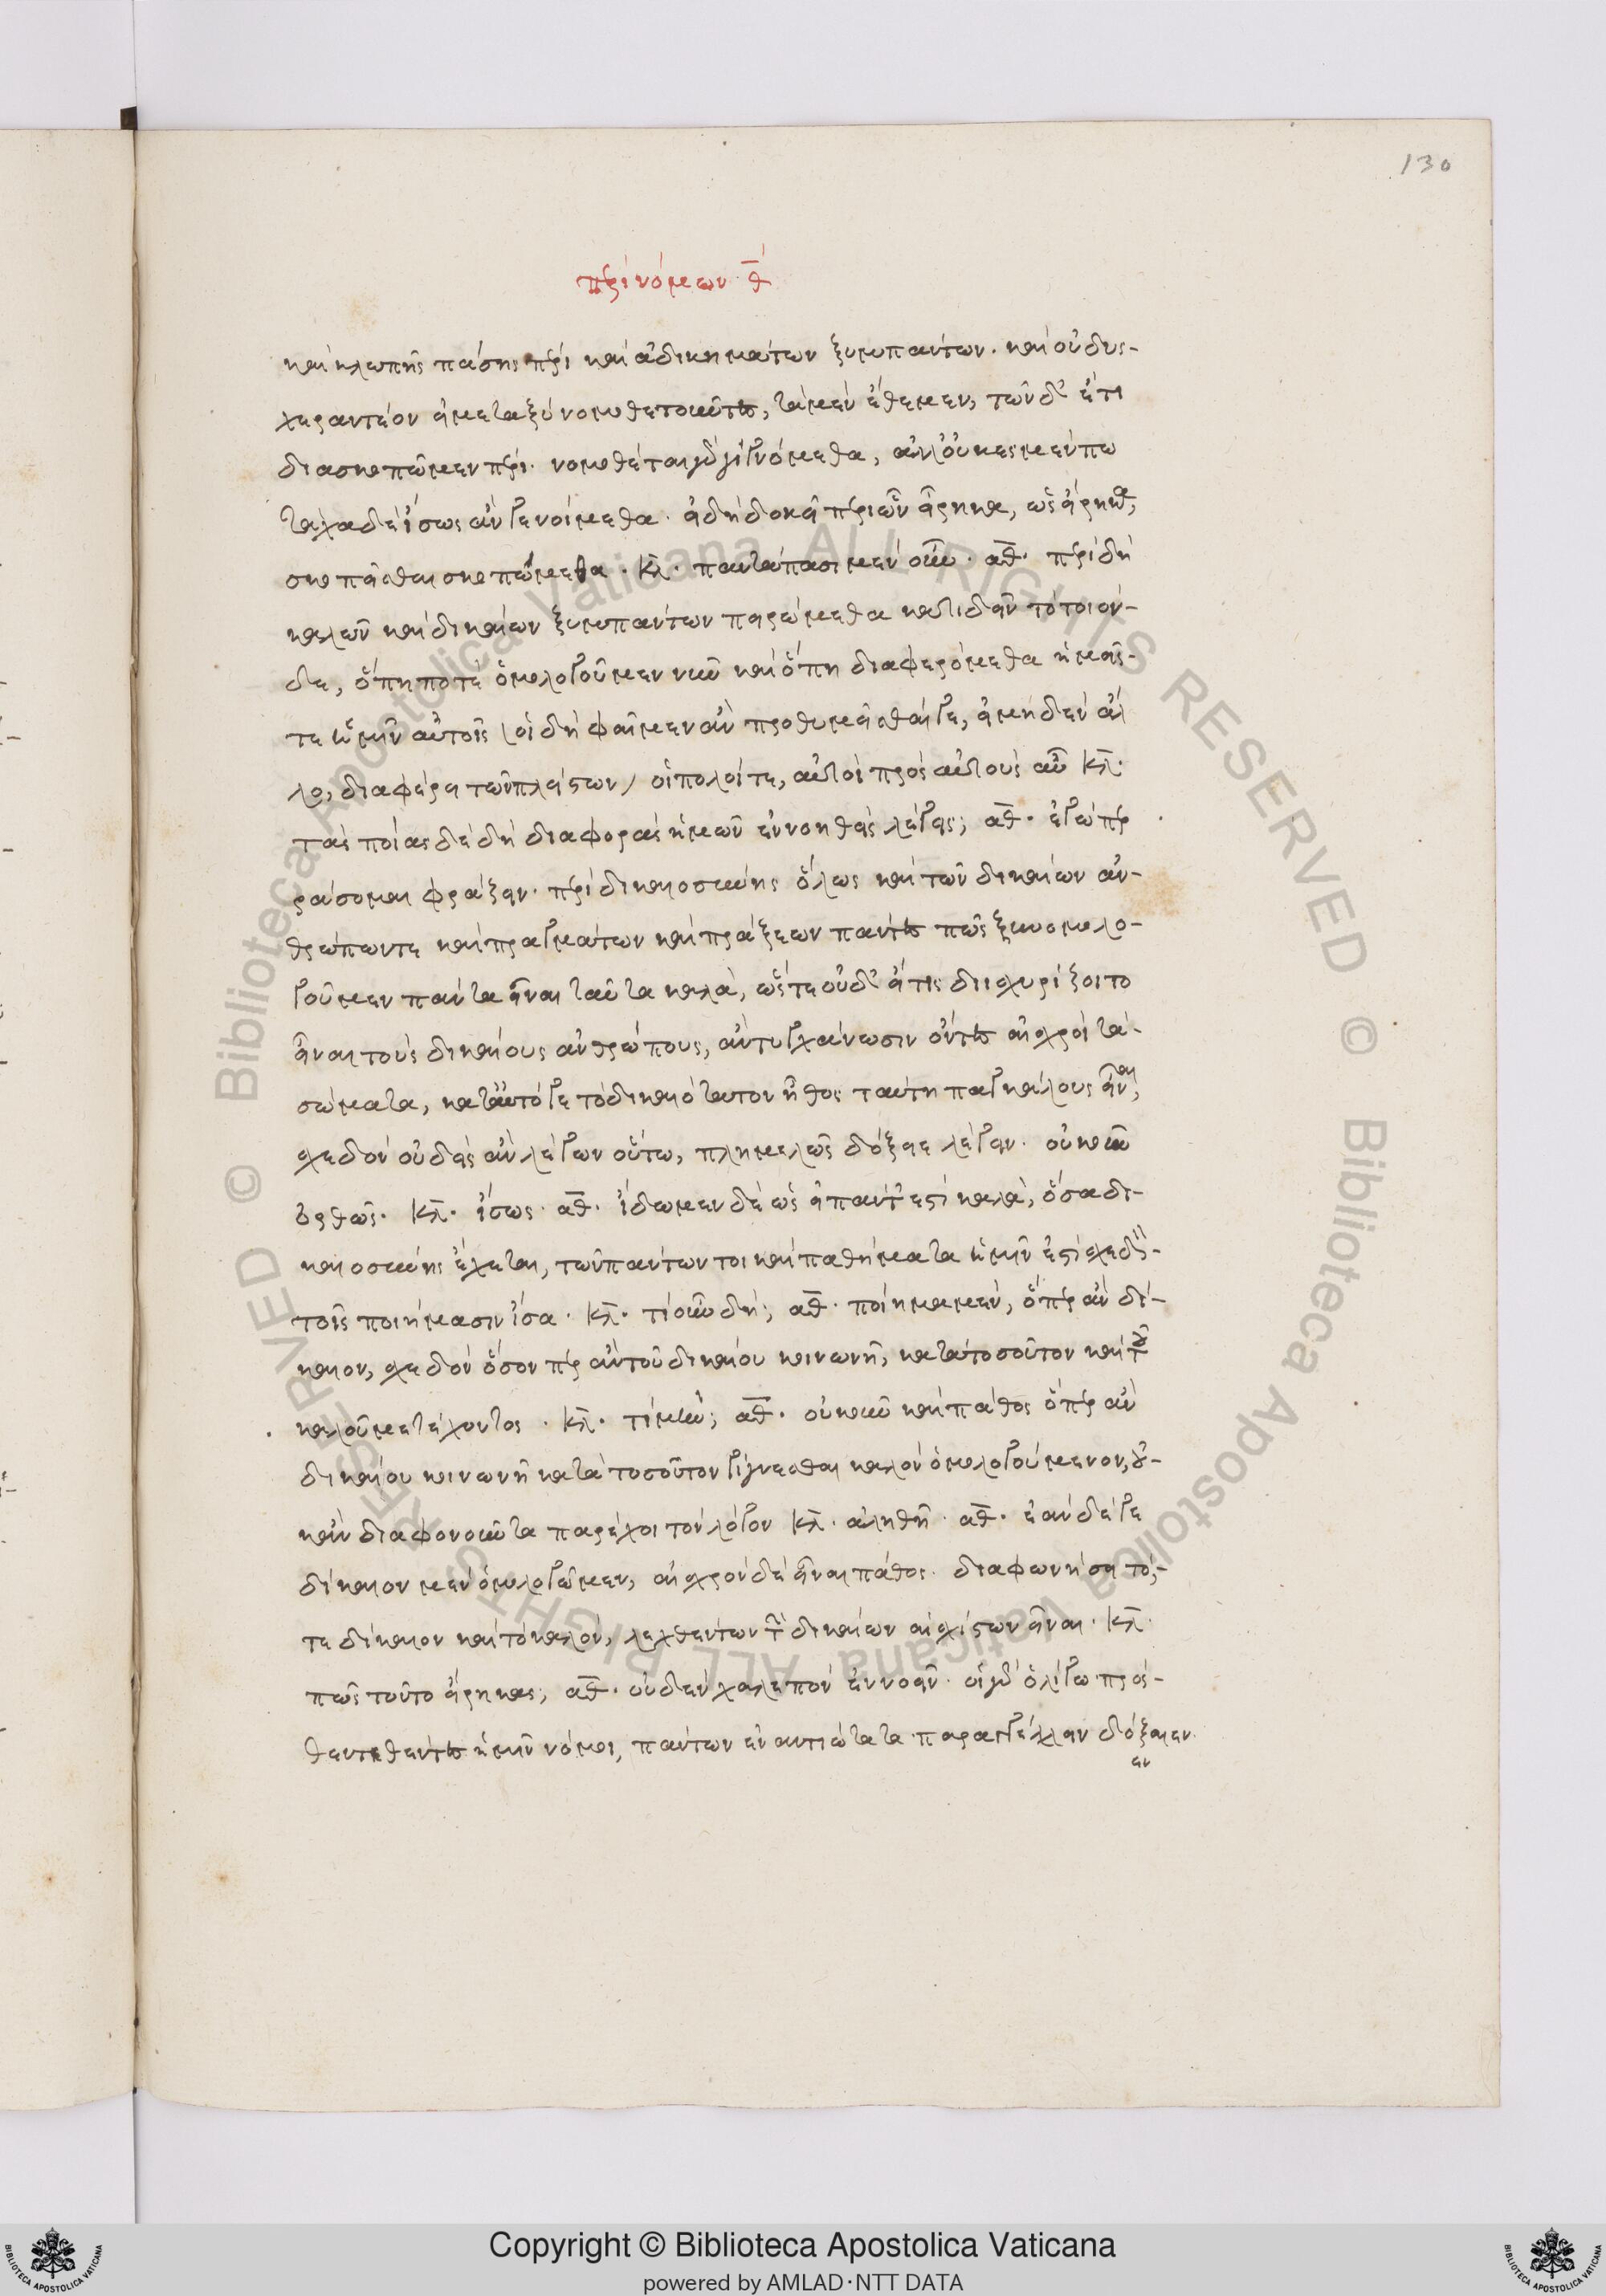 130
περὶ νόμων θ̄
καὶ κλοπῆς πάσης πέρι καὶ ἀδικημάτων ξυμπάντων. καὶ οὐ δυσ-
χεραντέον εἰ μεταξὺ νομοθετοῦντες, τὰ μὲν ἔθεμεν, τῶν δ' ἔτι
διασκοποῦμεν πέρι. νομοθέται γὰρ γιγνόμεθα, ἀλλ' οὐκ ἐσμέν πω
τάχα δὲ ἴσως ἂν γενοίμεθα. εἰ δὴ δοκεῖ περὶ ὧν εἴρηκα, ὡς εἴρηκα,
σκοπεῖσθαι σκοπώμεθα. κλ. παντάπασι μὲν οὖν. αθ. περὶ δὴ
καλῶν καὶ δικαίων ξυμπάντων πειρώμεθα κατιδεῖν τὸ τοιόν-
δε, ὅπῃ ποτὲ ὁμολογοῦμεν νῦν καὶ ὅπῃ διαφερόμεθα ἡμεῖς-
τε ἡμῖν αὐτοῖς οἳ δὴ φαῖμεν ἂν προθυμεῖσθαί γε, εἰ μηδὲν ἄλ
λο, διαφέρειν τῶν πλείστων, οἱ πολλοί τε, αὐτοὶ πρὸς αὑτοὺς αὖ κλ.
τὰς ποίας δὲ δὴ διαφορὰς ἡμῶν ἐννοηθεὶς λέγεις; αθ. ἐγὼ πει
ράσομαι φράζειν. περὶ δικαιοσύνης ὅλως καὶ τῶν δικαίων ἀν-
θρώπων τε καὶ πραγμάτων καὶ πράξεων πάντες πῶς ξυνομολο-
γοῦμεν πάντα εἶναι ταῦτα καλά, ὥστε οὐδ' εἴ τις διισχυρίζοιτο
εἶναι τοὺς δικαίους ἀνθρώπους, ἂν τυγχάνωσιν ὄντες αἰσχροὶ τὰ-
σώματα, κατ' αὐτό γε τὸ δικαιότατον ἦθος ταύτῃ παγκάλους εἶναι,
σχεδὸν οὐδεὶς ἂν λέγων οὕτω, πλημμελῶς δόξειε λέγειν. οὐκοῦν
ὀρθῶς. κλ. ἴσως. αθ. ἴδωμεν δὲ ὡς εἰ πάντ' ἐστὶ καλὰ, ὅσα δι-
καιοσύνης ἔχεται, τῶν πάντων τοι καὶ παθήματα ἡμῖν ἐστὶ σχεδὸν-
τοῖς ποιήμασιν ἴσα. κλ. τί οὖν δή; αθ. ποίημα μὲν, ὅπερ ἂν δί-
καιον, σχεδὸν ὅσον περ ἂν τοῦ δικαίου κοινωνῇ, κατὰ τοσοῦτον καὶ τοῦ
καλοῦ μετέχοντος. κλ. τί μήν; αθ. οὐκοῦν καὶ πάθος ὅπερ ἂν
δικαίου κοινωνῇ κατὰ τοσοῦτον γίγνεσθαι καλὸν ὁμολογούμενον, οὐ-
κ ἂν διαφονοῦντα παρέχοι τὸν λόγον κλ. ἀληθῆ. αθ. ἐὰν δέ γε
δίκαιον μὲν ὁμολογῶμεν, αἰσχρὸν δὲ εἶναι πάθος. διαφωνήσει τό,-
τε δίκαιον καὶ τὸ καλόν, λεχθέντων τῶν δικαίων αἰσχίστων εἶναι. κλ.
πῶς τοῦτο εἴρηκας; αθ. οὐδὲν χαλεπὸν ἐννοεῖν. οἱ γὰρ ὀλίγω προσ-
θεντεθέντες ἡμῖν νόμοι, πάντων ἐναντιώτατα παραγγέλλειν δόξαιεν
εν
Copyright © Biblioteca Apostolica Vaticana
powered by AMLAD·NTT DATA